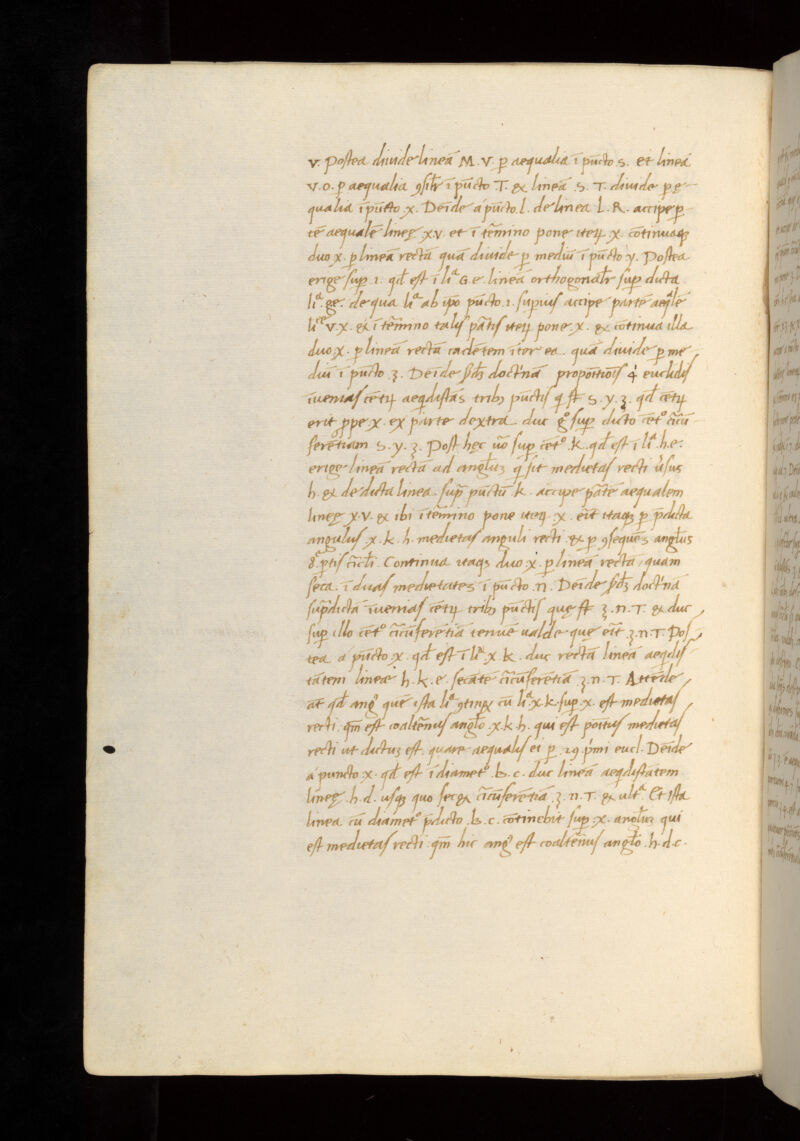 v. Postea diuide lineā M. V. ꝑ aequalia ī pūcto S. et lineā
V. O. ꝑ aequalia ꝯsilr̄ ī pūcto T. & lineā S. T. diuide ꝑ ę-
qualia ī pūcto x. Deīde a pūcto. l. de linea L. R. accipe ꝑ
tē aequalē lineę xv. et ī tẽmino pone iteꝝ x. cōtinuaqȝ
duo x. ꝑ lineā rectā quā diuide ꝑ mediū ī pūcto y. Postea
erige suꝑ .1. qđ est ī liᵃ G. e. lineā orthogonalr̄ suꝑ dicta
liᵃ. ge. de qua liᵃ ab ip̄o pūcto .1. supius accipe partē aeq̄lē
liᵉ v. x. & ī tẽmino talis ꝑatis iteꝝ pone x. & cōtinua illa
duo x. ꝑ lineā rectā cadētem īter ea. quā diuide ꝑ me
diū ī pūcto ʒ. Deīde doct'nā propōitiōis 4 euclidis
īuenias cētꝝ aeqdistās tribꝰ pūctis q̄ st̄ S. y. ʒ. qđ cētꝝ
erit prope x. ex parte dextra duc suꝑ dicto cētᵒ cīcū
ferētiam S. y. ʒ. Post hęc ūo suꝑ cētᵒ k. qđ est ī liᵃ h. e.
erige lineā rectā ad anglūȝ q̄ sit medietas recti ūsus
h. & de dicta linea. supᵃ pūctū k. accipe ꝑatē aequalem
lineę x. v. & ibi ī tẽmino pone iteꝝ x. eīt itaqȝ ꝑ p̄dicta
angulus x. k. h. medietas anguli recti & ꝑ ꝯsequēs anglūs
ptis cīcl̄i. Continua itaqȝ duo x. ꝑ lineā rectā quam
seca. ī duas medietates ī pūcto n. Deīde doct'nā
supᵃdicta īuenias cētꝝ tribꝰ pūctis quę st̄ ʒ. n. T. & duc
suꝑ illo cētᵒ cīcūferētiā tenuē ualde quę eīt ʒ. n. T. Pos
tea a pūcto x. qđ est ī liᵃ x. k. duc rectā lineā aeqdis
tātem lineae h. k. e. secātē cīcūferētiā ʒ. n. T. Attēde
at qđ angᵒ quē ista liᵃ ꝯtingȝ cū liᵃ x. k. suꝑ x. est medietas
recti. qm̄ est coaltẽnus anglō x. k. h. qui est positus medietas
recti ut dictuȝ est. quare aequalis ei ꝑ .29. p̄mi eucl. Deīde
a puncto x. qđ est ī diametᵒ b. c. duc lineā aeqdistātem
lineę h. d. usqȝ quo secȝ cīcūferētiā ʒ. n. T. & ultᵃ Et ista
linea cū diametᵒ p̄dicto b. c. cōtinebit suꝑ x. anglūȝ qui
est medietas recti qm̄ hic angᵒ est coaltẽnus anglō h. d. c.